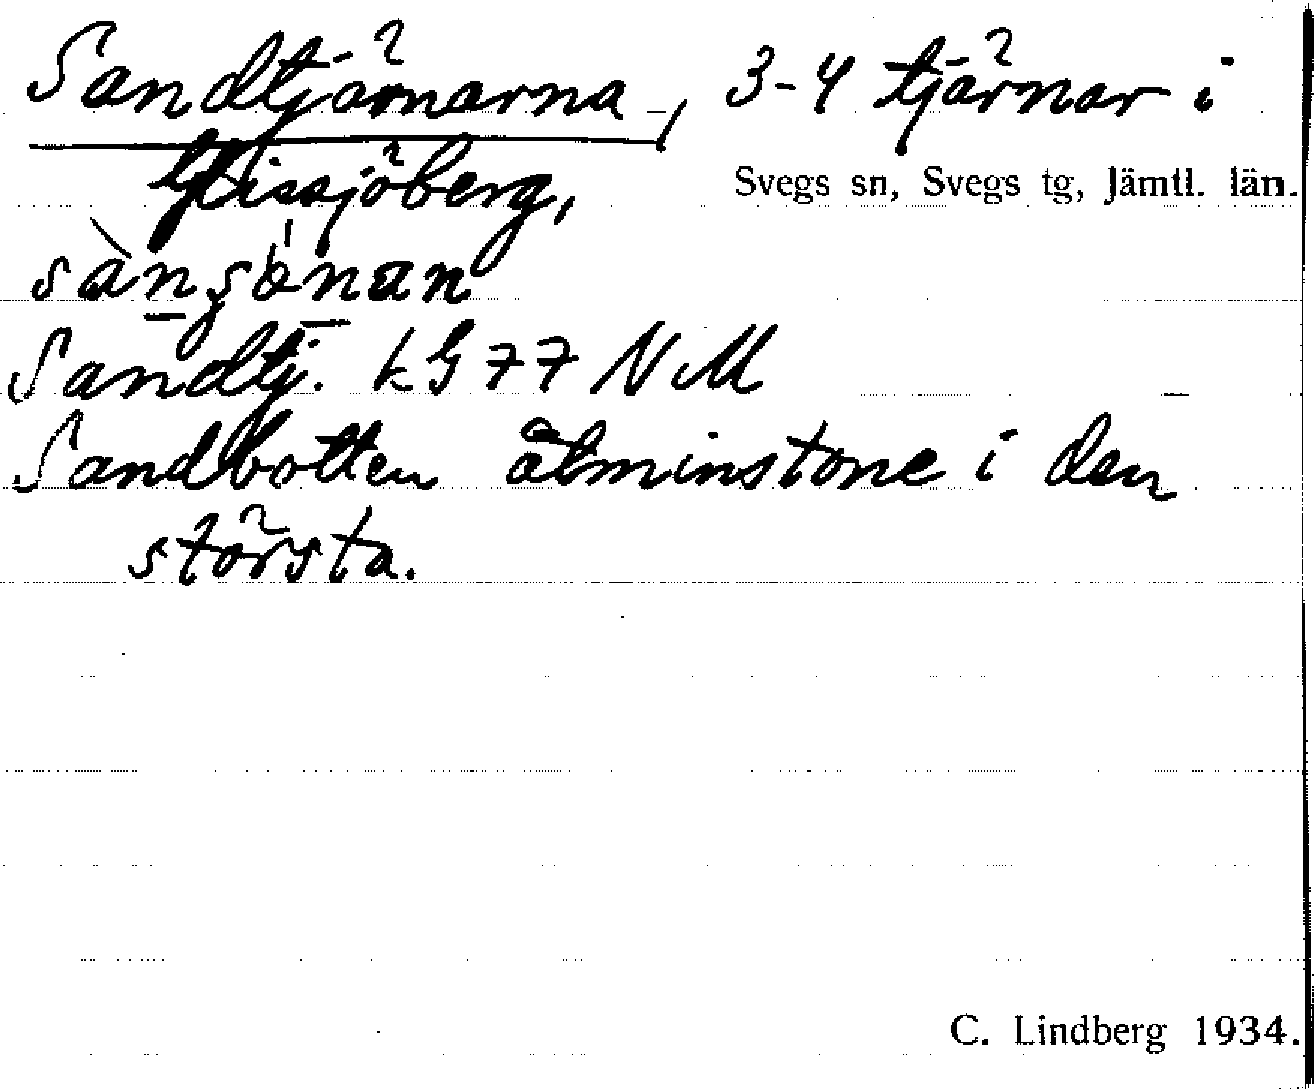 Sandtjärnarna, 3-4 tjärnar i
Glissjöberg, Svegs sn, Svegs tg, Jämtl. län.
Sandtj. kG 77 NM
Sandbotten åtminstone i den
största.
C. Lindberg 1934.